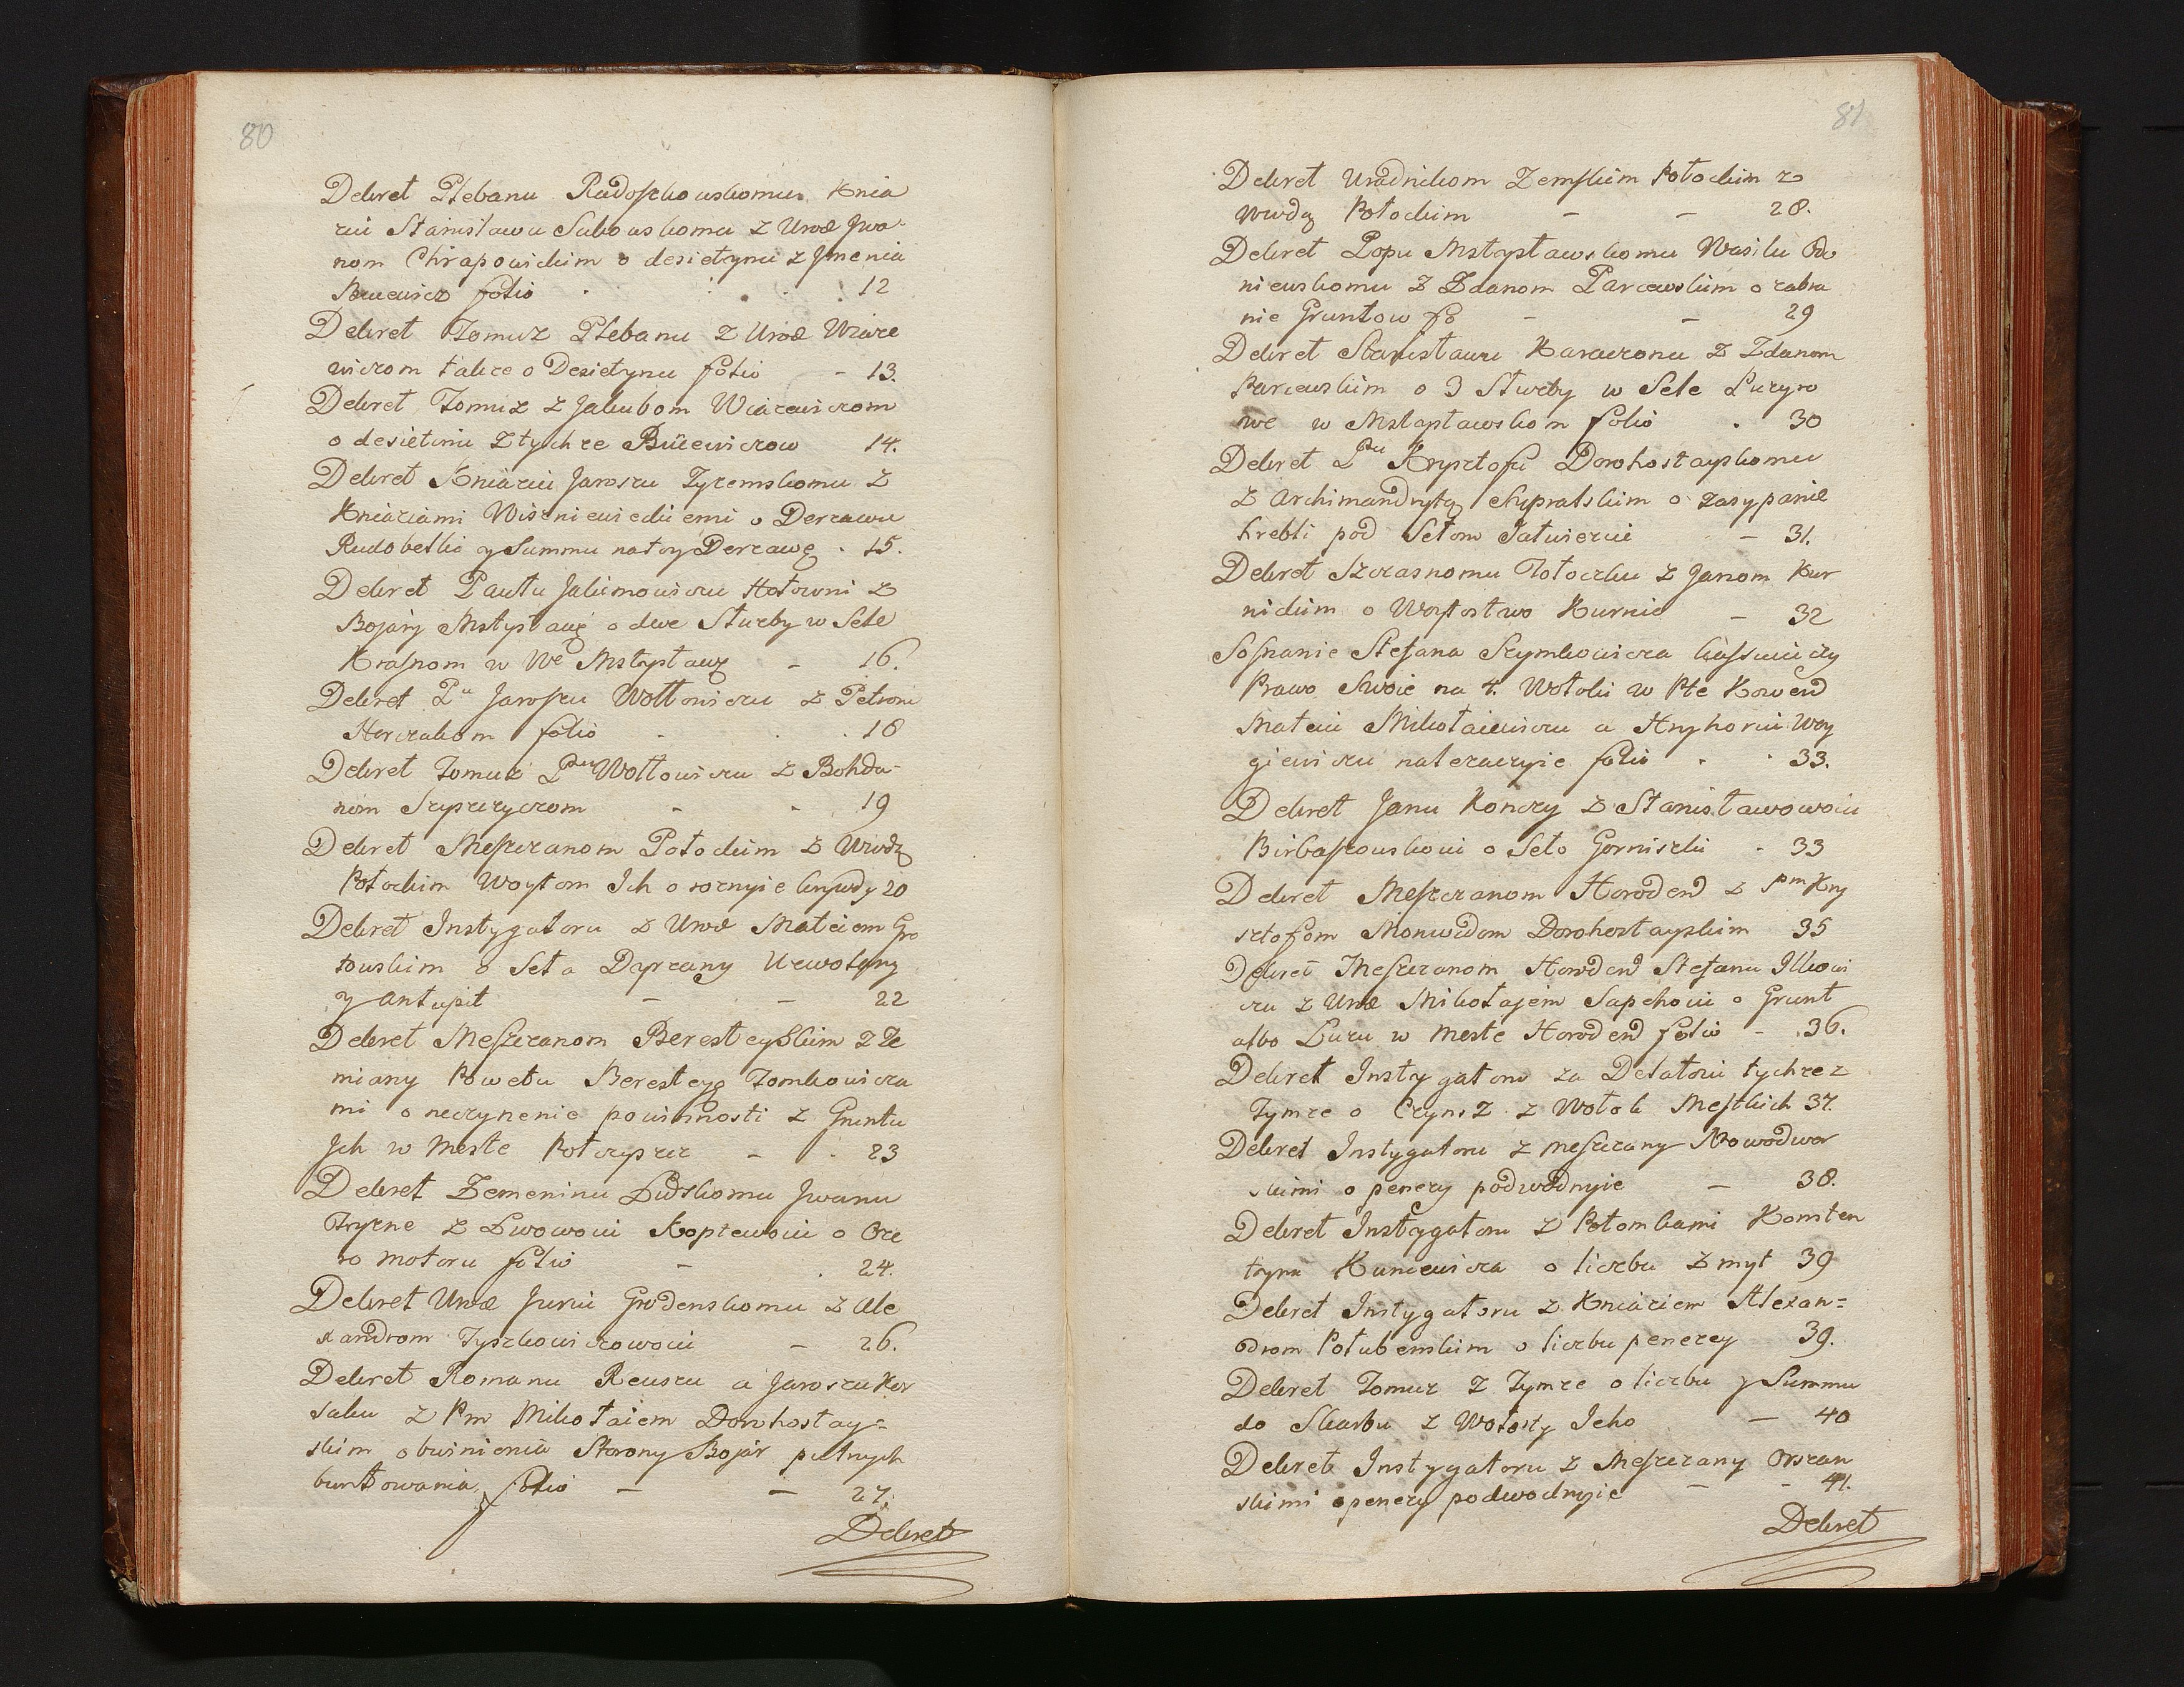 80
Dekret Plebanu Radoszkowskomu Knia
ziu Stanisławu Sukowskomu z Urod Jwa-
nom Chrapowickim o desietynu z Jmenia
folio 12
Dekret Tomuz Plebanu z Urod Wiaze
wiczom takze o Desietynu folio - 13.
Dekret Tomuz z Jakubom Wiazewiczom
o desietinu z tychze Bucewiczow 14.
Dekret Kniaziu Jaroszu Zyzemskomu z
Kniaziami Wiszniewieckiemi o Derzawu
Rudobelko y Summu na toy Derzawę . 15.
Dekret Pawłu Jakimowiczu Hołowni z
Bojary Mstysławę o dwe Służby w Sele
Krasnom w We Mstysławę - 16.
Dekret Pu Jaroszu Wołłowiczu z Petrom
Herczakom folio . . 18
Dekret Tomuz Pu Wołłowiczu z Bohda-
nom - - 19
Dekret Meszczanom Połockim z Wwdą
Połockim Woytom Jch o roznyie krywdy 20
Dekret Instygatoru z Urod Mateiom Gro
towskim o Seła Dzprzany
y - - 22
Dekret Meszczanom Beresteyskim z Ze
miany Powetu Beresteyę Tomkowicza
mi o neczynenie powinnosti z Gruntu
Jch w Meste - . 23
Dekret Zemeninu Lidskomu Jwanu
Tryzne z Lwowoui Koptewoui o Oze
ro Motoru folio - . 24.
Dekret Urod Juriu Grodenskomu z Ale
xandrom Tyszkowiczowoui - 26.
Dekret Romanu Reuszu a Jaroszu Kor
saku z Pm Mikołaiem Dorohostay=
skim obwinieniu Storony Bojar putnych
buntowania folio - - 27.
Dekret
81
Dekret Uradnikom Zemskim Połockim z
Wwdą Połockim - - 28.
Dekret Popu Mstysławskomu Wasilu Odo
niewskomu z Zdanom Parcewskim o zabra
nie Gruntow fo - - 29
Dekret Stanisławu Karaczonu z Zdanom
Parcewskim o 3 Służby w Sele Luzyro
we w Mstysławskom folio . 30
Dekret Pu Krysztofu Dorohostayskomu
z Archimandrytą Supraskim o zasypanie
hrebli pod Sełom - 31.
Dekret Szczasnomu Tołoczku z Janom Kur
nickim o Woytostwo Kurnic - 32
Soznanie Stefana Szymkowicza
Prawo Swoie na 4. Wołoki w Pte Kowen
Mateiu Mikołaiewiczu a Hryhoriu Woy
giewiczu należaczyie folio . . 33.
Dekret Janu Konczy z Stanisławowoiu
Birbaszowskoui o Seło Gorniszki - 33
Dekret Meszczanom Horoden z Pm Kry
sztofom Monwidom Dorohostayskim 35
Dekret Meszczanom Horoden Stefanu Jlkowi
czu z Urod Mikołajem Sapehoiu o Grunt
albo Łuzu w Meste Horoden folio - 36.
Dekret Instygatoru za Delatoru tychze z
Tymze o Czynsz z Wołok Mestkich 37.
Dekret Instygatoru z Meszczany Nowodwor
skimi o penezy podwodnyie - 38.
Dekret Instygatoru z Potomkami Konsten
tyna Kuncewicza o liczbu z myt 39
Dekret Instygatoru z Kniaziem Alexan=
drom Połubenskim o liczbu penezey 39.
Dekret Tomuz z Tymze o liczbu y Summu
do Skarbu z Wołosty Jeho - 40
Dekret Instygatoru z Meszczany Orszan
skimi o penezy podwodnyie - - 41.
Dekret